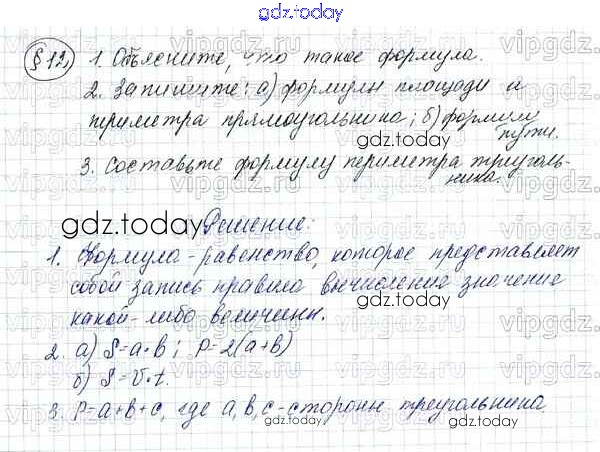 gdz.today
§ 12, 1. Объясните, что такое формула.
2. Запишите: а) формулы площади и
периметра прямоугольника; б) формулу
пути.
gdz.today
3. Составьте формулу периметра треуголь-
ника.
gdz.today
gdz.today Решение:
1. Формула - равенство, которое представляет
собой запись правила вычисления значения
какой-либо величины.
gdz.today
2. а) S=a·b; P=2(a+b)
б) S=v·t.
3. P=a+b+c, где a,b,c - стороны треугольника
gdz.today
vipgdz.ru